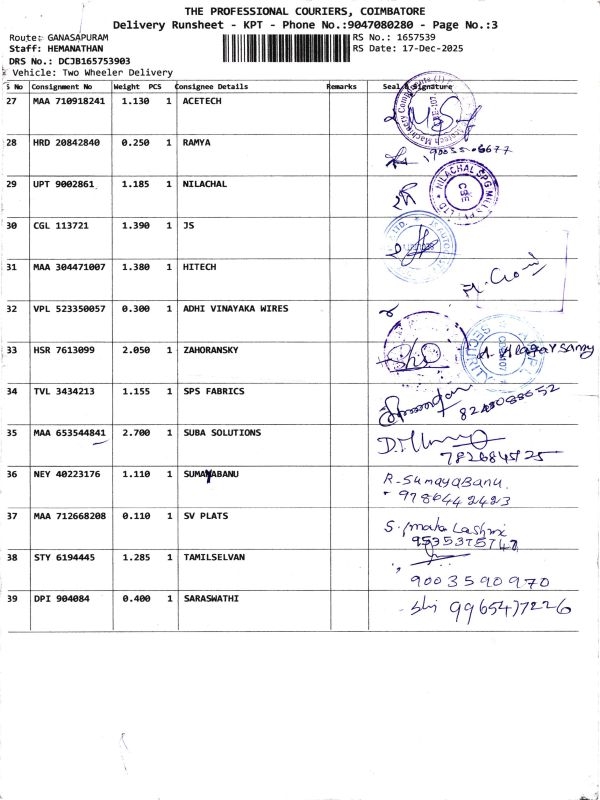 THE PROFESSIONAL COURIERS, COIMBATORE
Delivery Runsheet - KPT - Phone No.:9047080280 - Page No.:3
Route: GANASAPURAM RS No.: 1657539
Staff: HEMANATHAN RS Date: 17-Dec-2025
DRS No.: DCJB165753903
Vehicle: Two Wheeler Delivery
S No Consignment No Weight PCS Consignee Details Remarks Seal & Signature
27 MAA 710918241 1.130 1 ACETECH
28 HRD 20842840 0.250 1 RAMYA
29 UPT 9002861 1.185 1 NILACHAL NILACHAL SPG MILLS CBE
30 CGL 113721 1.390 1 JS
31 MAA 304471007 1.380 1 HITECH
32 VPL 523350057 0.300 1 ADHI VINAYAKA WIRES
33 HSR 7613099 2.050 1 ZAHORANSKY SECURITY
34 TVL 3434213 1.155 1 SPS FABRICS
35 MAA 653544841 2.700 1 SUBA SOLUTIONS
7826845925
36 NEY 40223176 1.110 1 SUMAYABANU R-SumayaBanu.
9786442423
37 MAA 712668208 0.110 1 SV PLATS
38 STY 6194445 1.285 1 TAMILSELVAN
9003590970
39 DPI 904084 0.400 1 SARASWATHI 9965477226